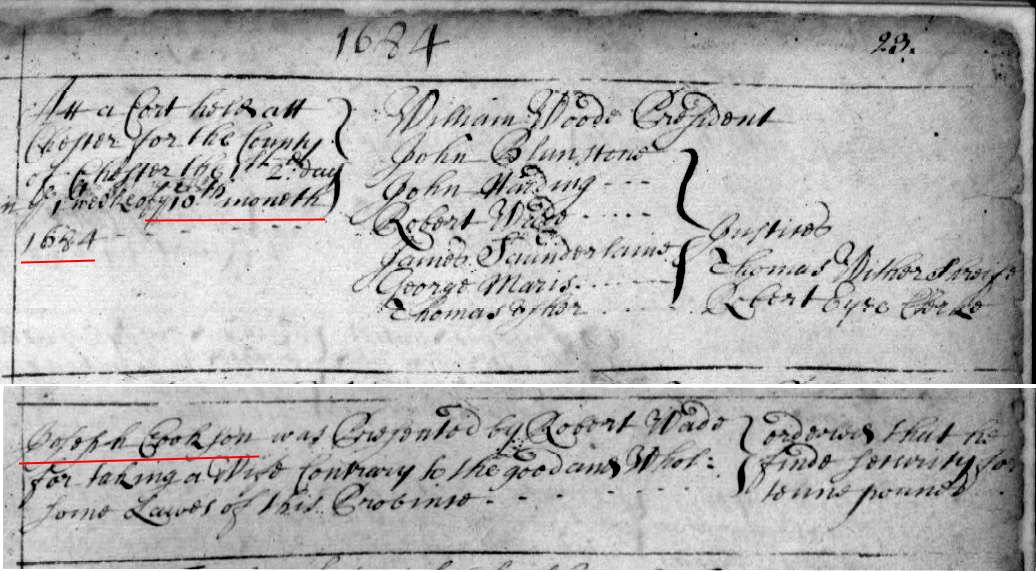 1684
23.
Att a Cort held att
Chester for the County
of Chester the 1th 2d day
in ye 1 weeke of ye 10th moneth
1684
William Woode President
John Blunstone
John Harding
Robert Wade
James Saunderlaine
George Maris
Thomas Usher
Justices
Thomas Withers Sreife
Robert Eyre Clerke
Joseph Cookson was Presented by Robert Wade
for takeing a Wife Contrary to the good and Whol:
some Lawes of this Province
ordered that he
finde security for
tenne pounds